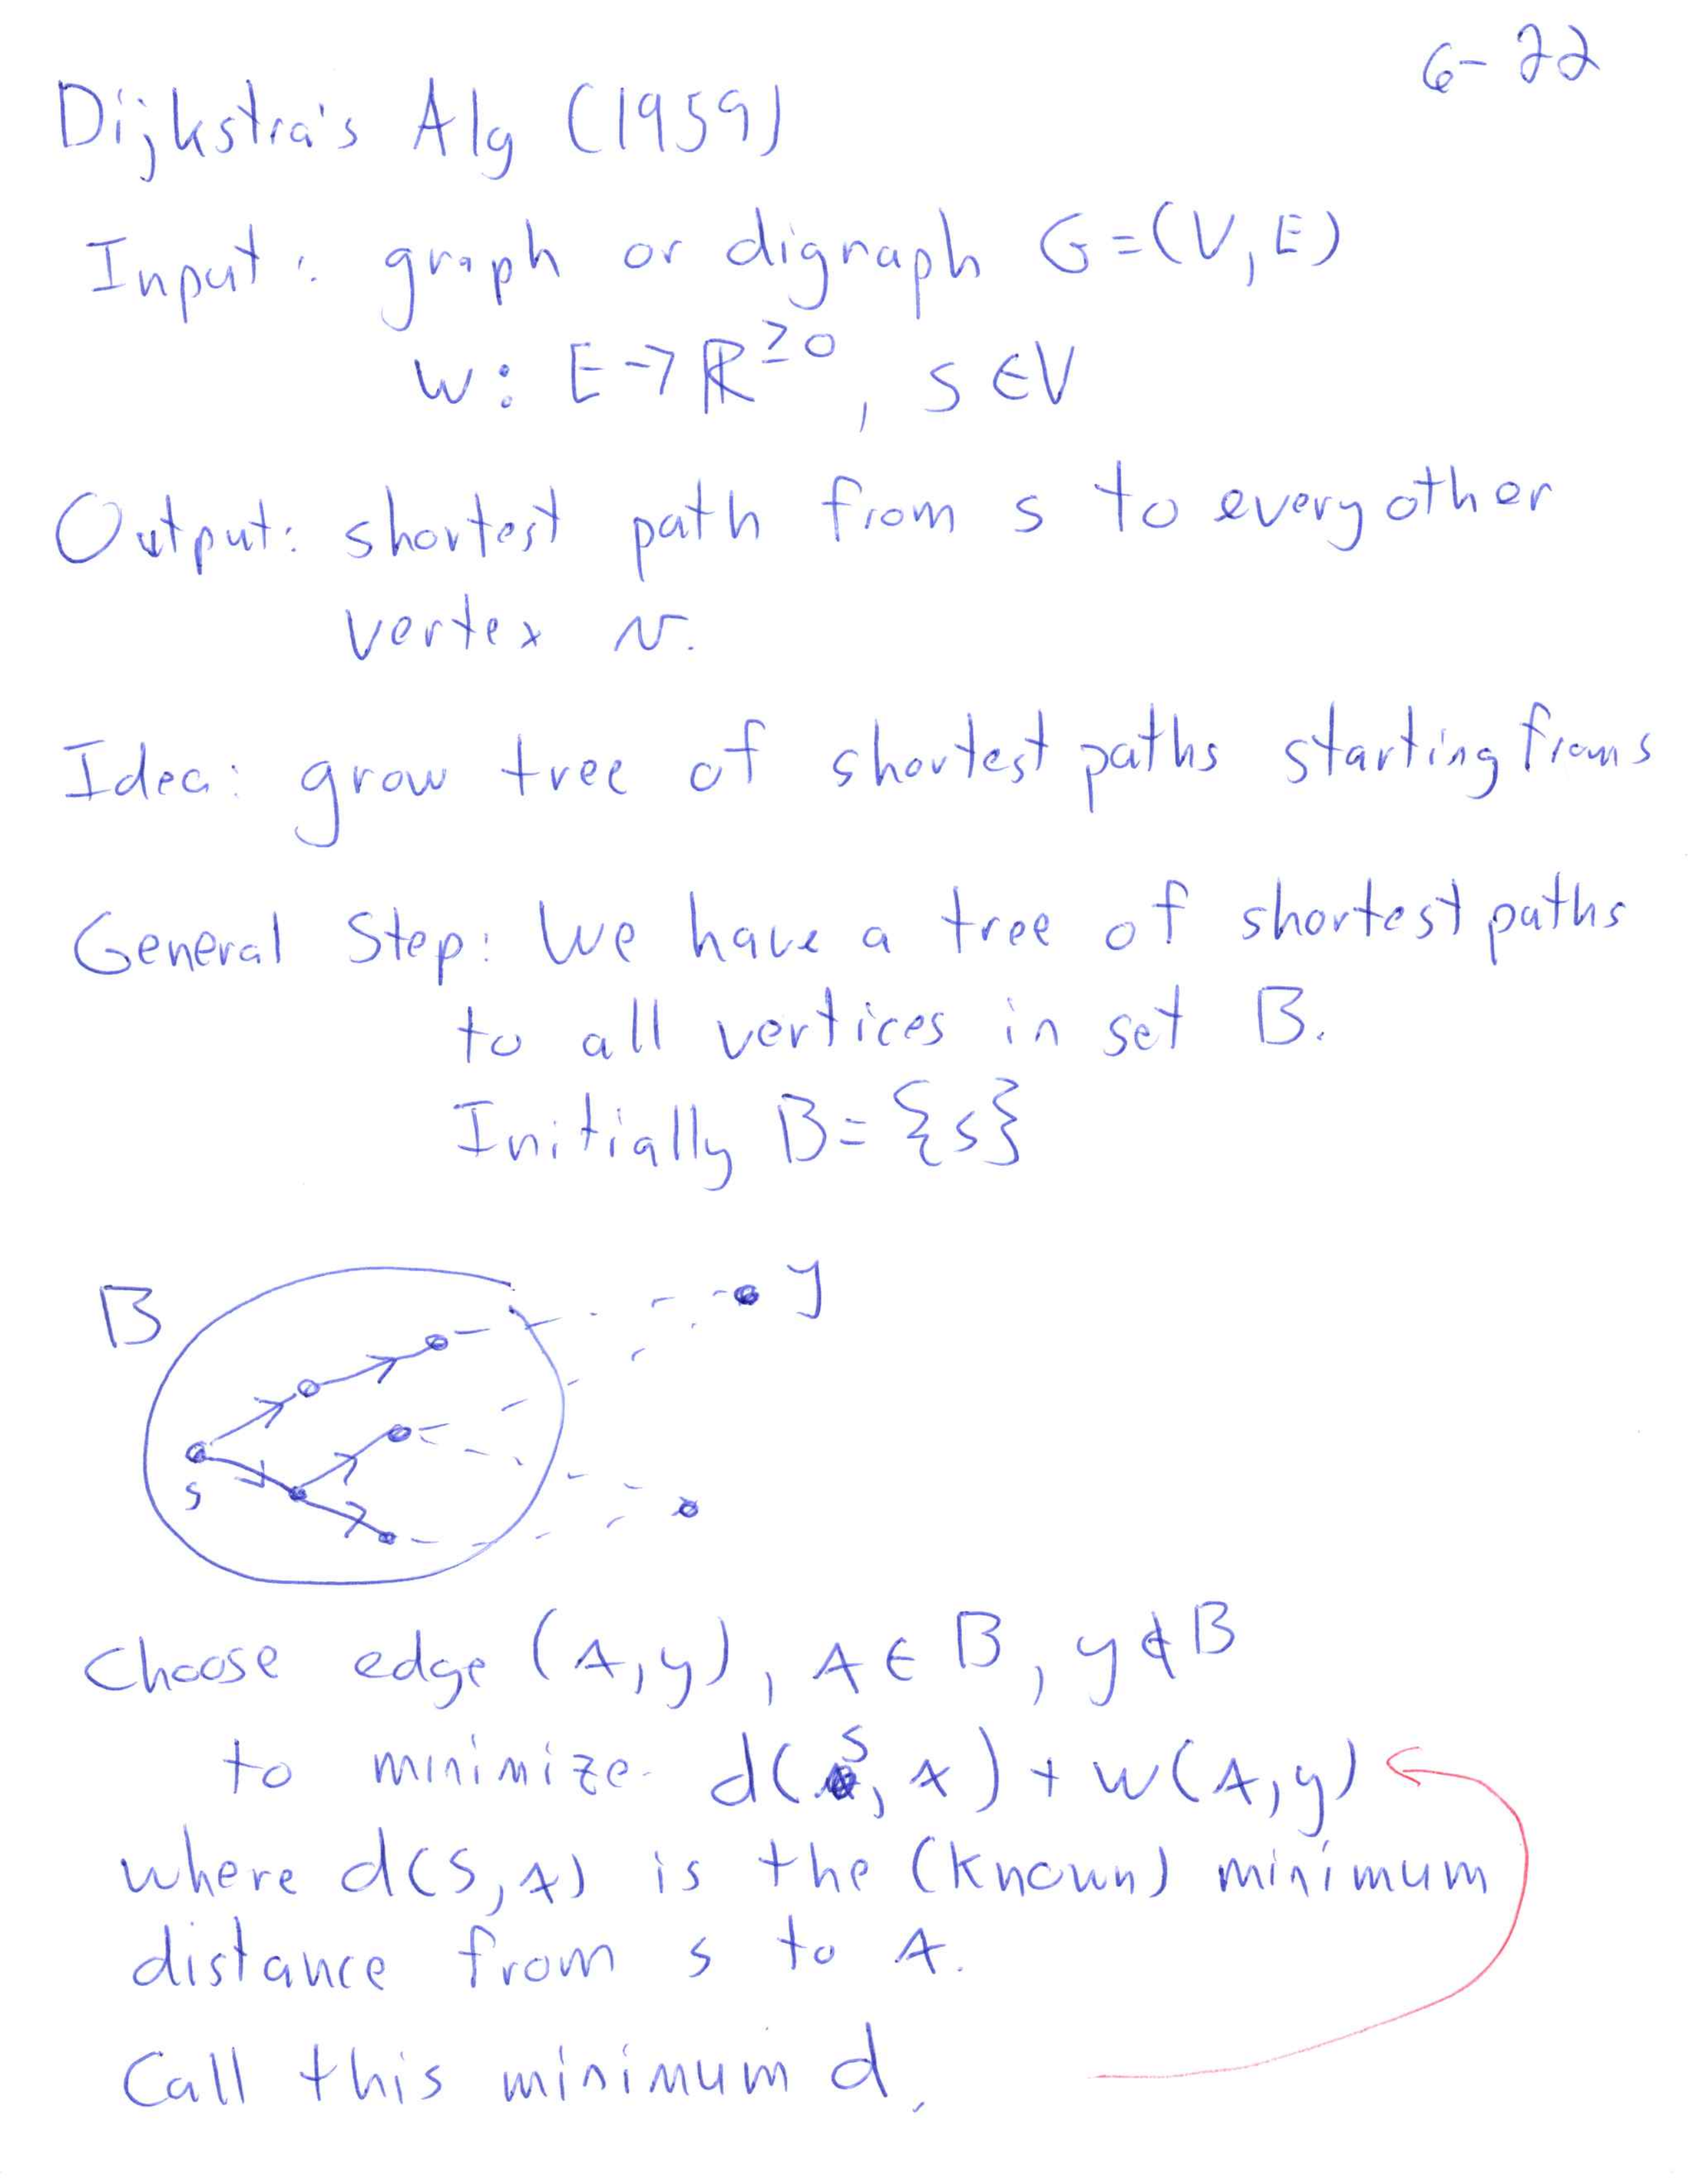 6-22
Dijkstra's Alg (1959)
Input: graph or digraph G=(V,E)
w: E→ℝ≥0, s∈V
Output: shortest path from s to every other
vertex v.
Idea: grow tree of shortest paths starting from s
General Step: We have a tree of shortest paths
to all vertices in set B.
Initially B={s}
B
y
s
Choose edge (x,y), x∈B, y∉B
to minimize d(s,x)+w(x,y)
where d(s,x) is the (known) minimum
distance from s to x.
Call this minimum d.